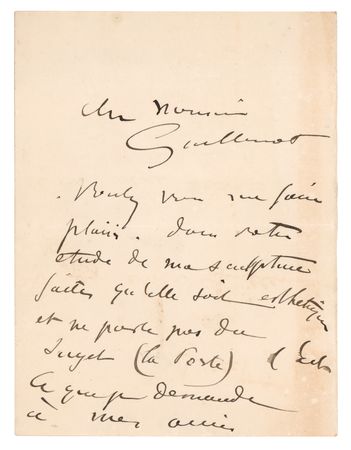 cher Monsieur
Guillemot
. Voulez vous me faire
plaisir. dans votre
étude de ma sculpture
faites qu'elle soit esthétique
et ne parle pas du
sujet (la Porte) c'est
ce que je demande
à mes amis